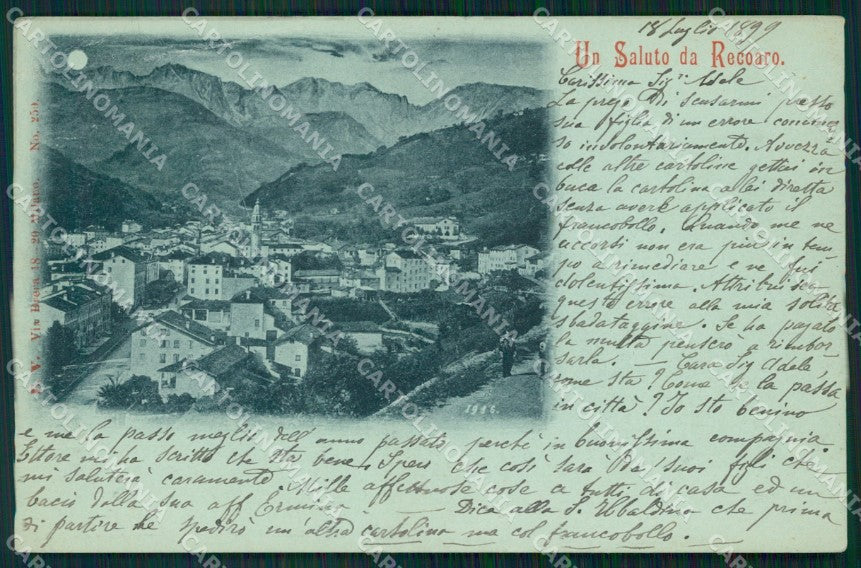 18 Luglio 1899
Un Saluto da Recoaro.
Carissima Sig.ra Adele
La prego di scusarmi presso
sua figlia di un errore commes
so involontariamente. Avvezza
colle altre cartoline gettai in
buca la cartolina a lei diretta
senza avere applicato il
francobollo. Quando me ne
accorsi non era più in tem
po a rimediare e ne fui
dolentissima. Attribuisca
questo errore alla mia solita
sbadataggine. Se ha pagato
la multa penserò a rimbor
sarla. — Cara Sig Adele
come sta? Come se la passa
in città? Io sto benino
e me la passo meglio dell'anno passato perchè in buonissima compagnia.
Ettore mi ha scritto che sta bene. Spero che così sarà dei suoi figli che
mi saluterà caramente. Mille affettuose cose a tutti di casa ed un
bacio dalla sua aff Erminia — Dica alla S. Ubaldina che prima
di partire le spedirò un'altra cartolina ma col francobollo.
No. 250.
Via Brera 18 - 20 Milano.
1986
CARTOLINOMANIA